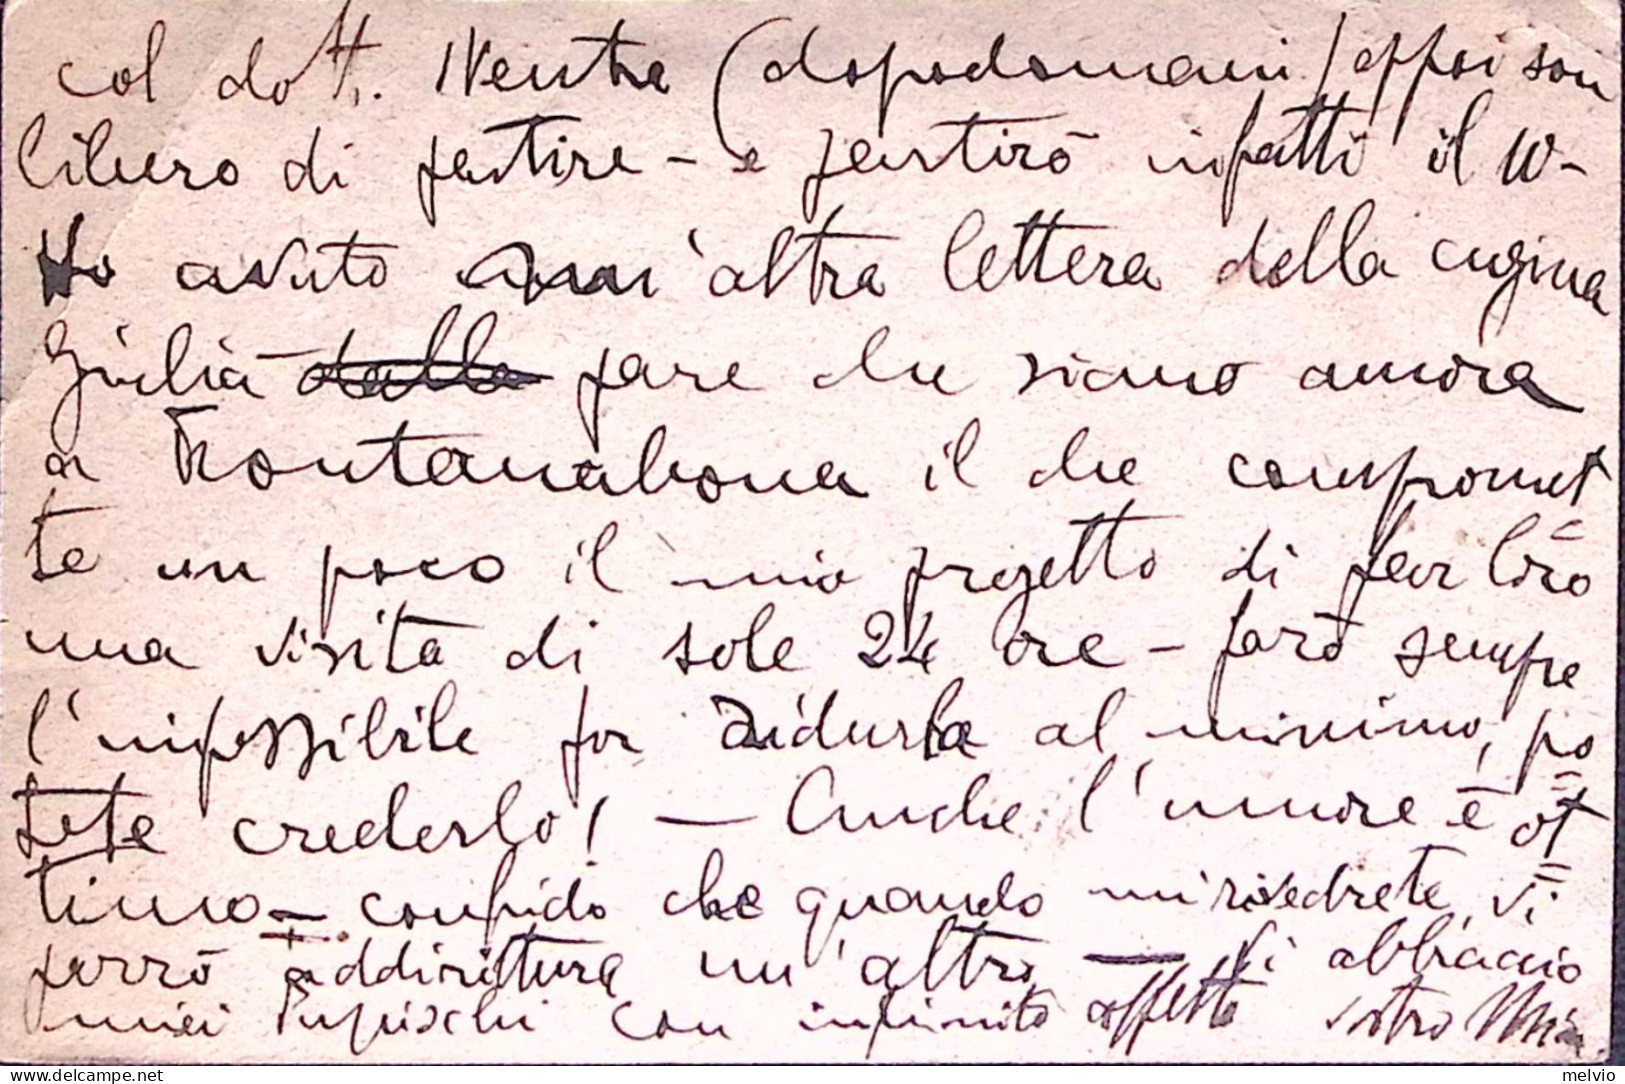 col dott. Ventra (dopodomani) eppoi son
libero di partire - e partirò infatti il 10-
Ho avuto un'altra lettera della cugina
Giulia pare che siano ancora
a Fontanabona il che compromet=
te un poco il mio progetto di far loro
una visita di sole 24 ore - farò sempre
l'impossibile per ridurla al minimo, po=
tete crederlo! — Anche l'umore è ot=
timo - confido che quando mi rivedrete, vi
parrò addirittura un'altro — Vi abbraccio
miei con infinito affetto vostro
melvio